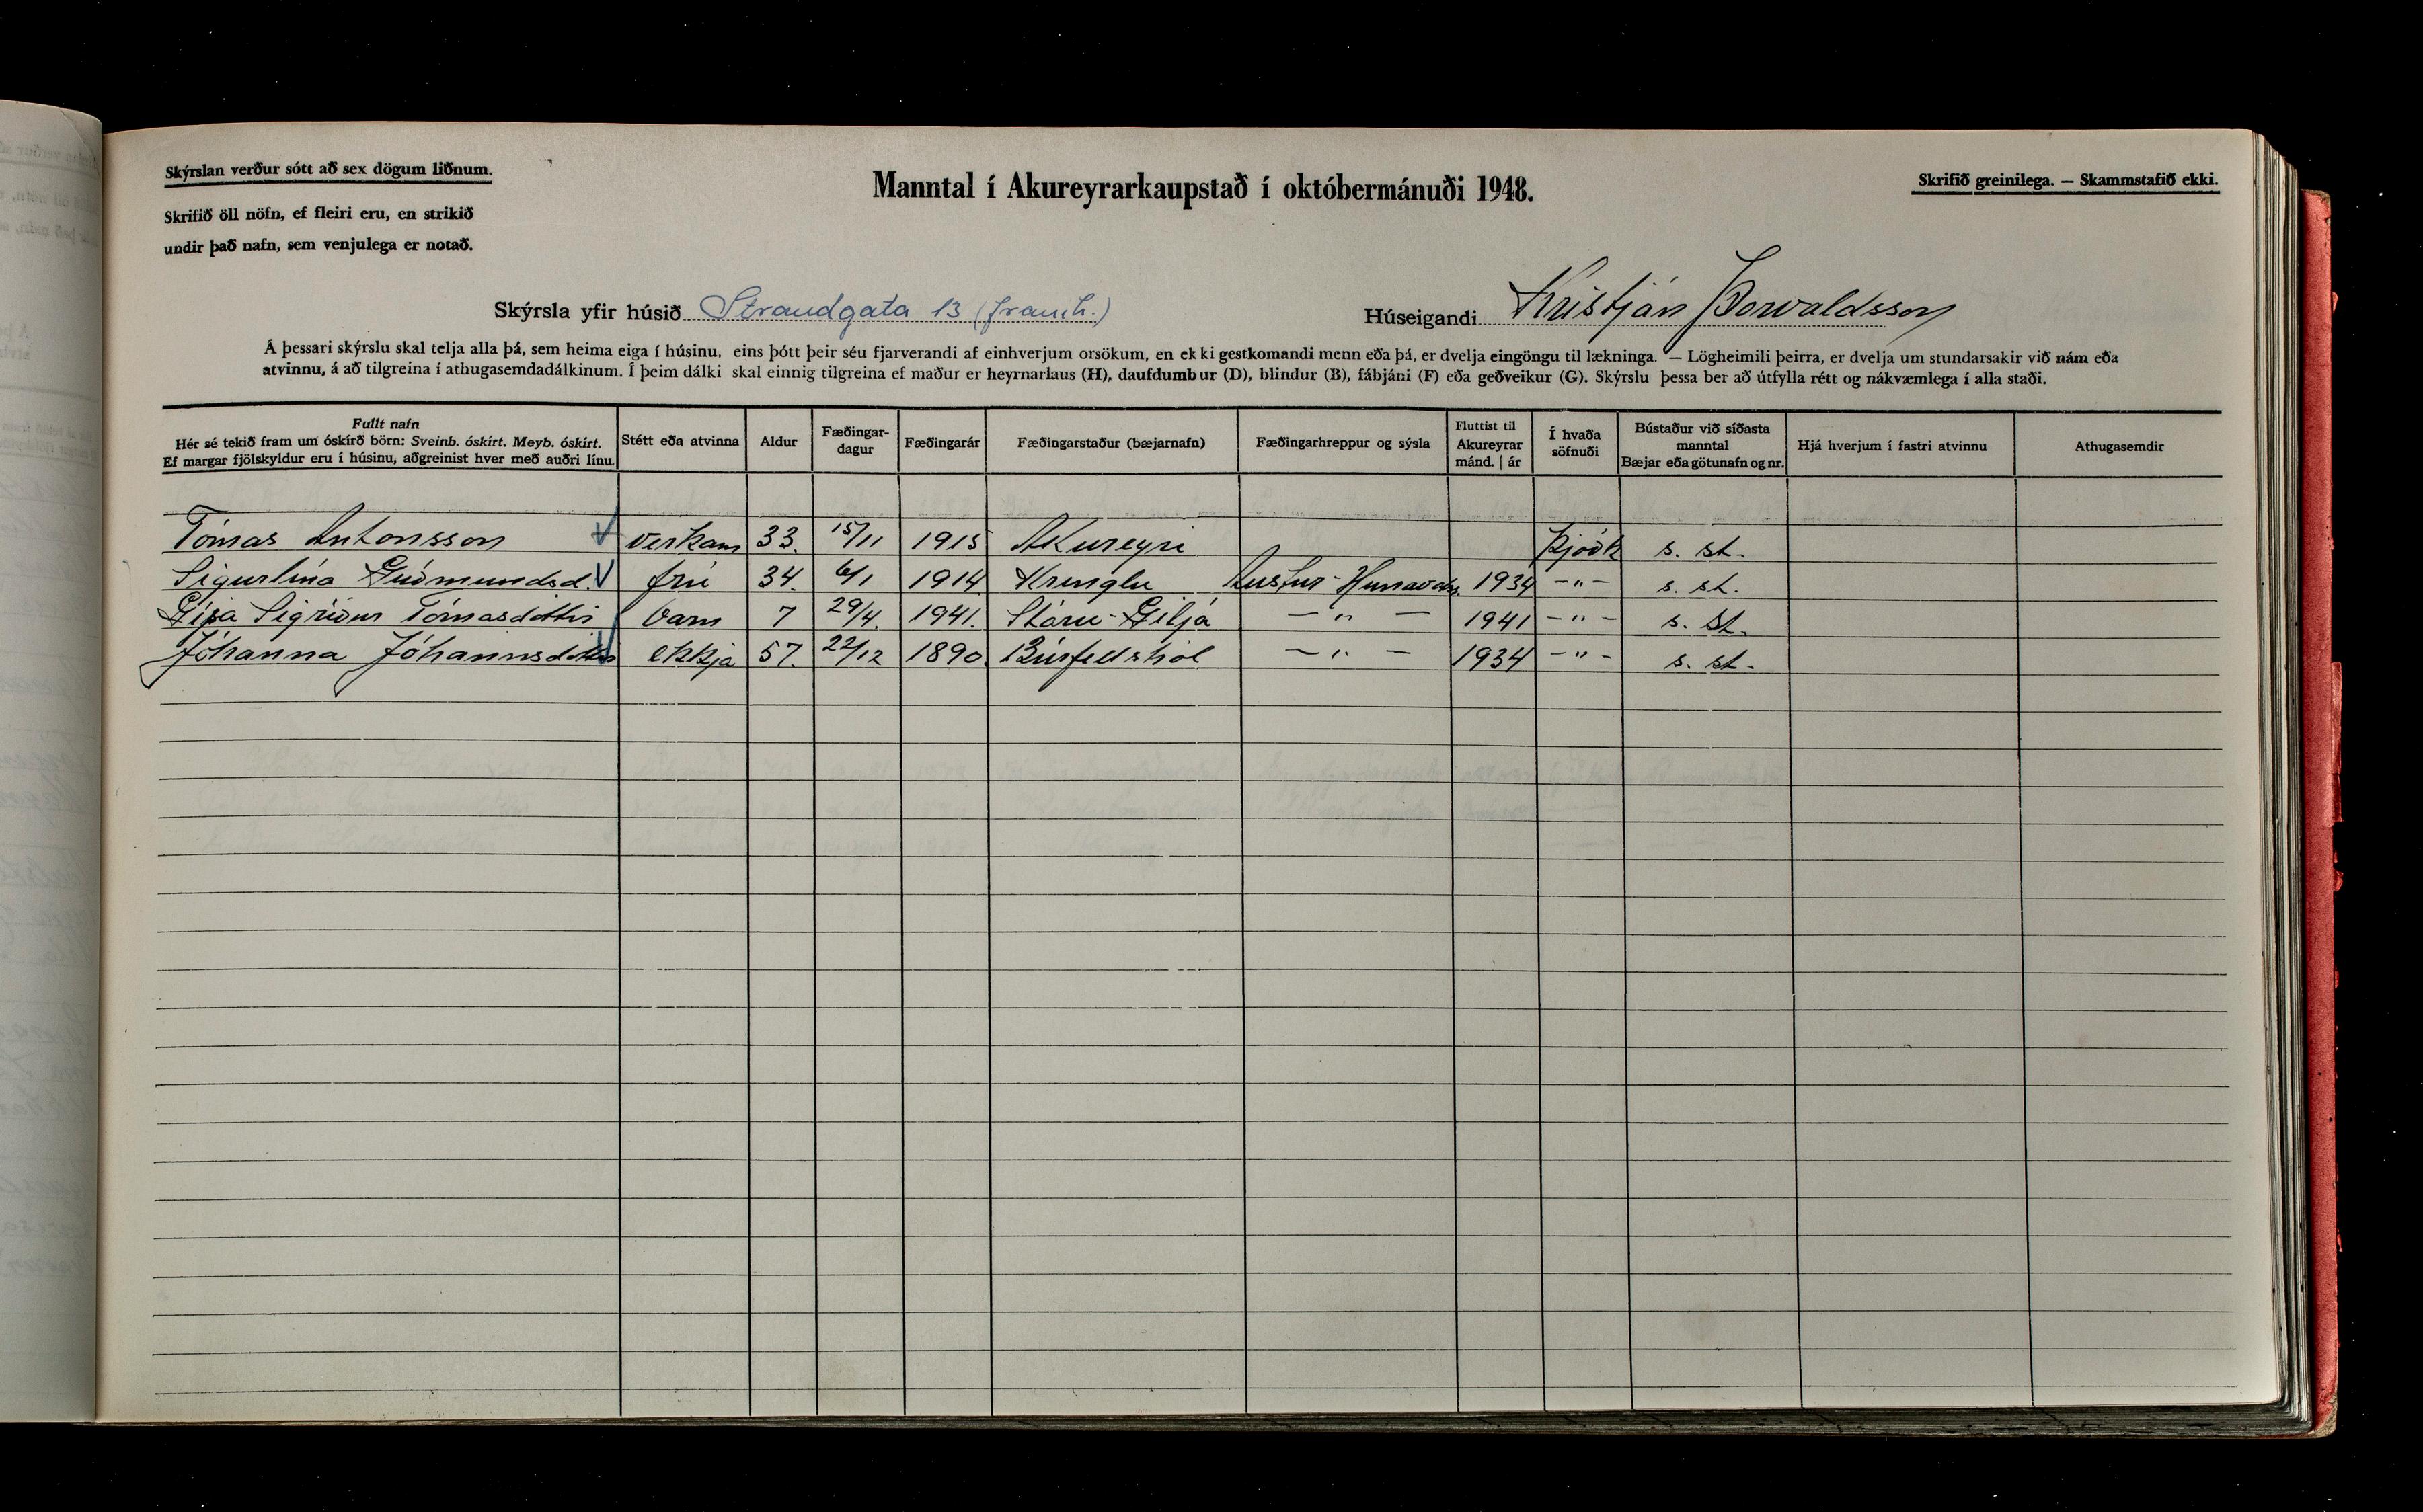 Skýrslan verður sótt að sex dögum liðnum.
Skrifið öll nöfn, ef fleiri eru, en strikið
undir það nafn, sem venjulega er notað.
Manntal í Akureyrarkaupstað í októbermánuði 1948.
Skrifið greinilega. — Skammstafið ekki.
Skýrsla yfir húsið Strandgata 13 (framh.)
Húseigandi Kristján Þorvaldsson
Á þessari skýrslu skal telja alla þá, sem heima eiga í húsinu, eins þótt þeir séu fjarverandi af einhverjum orsökum, en ekki gestkomandi menn eða þá, er dvelja eingöngu til lækninga. — Lögheimili þeirra, er dvelja um stundarsakir við nám eða
atvinnu, á að tilgreina í athugasemdadálkinum. Í þeim dálki skal einnig tilgreina ef maður er heyrnarlaus (H), daufdumbur (D), blindur (B), fábjáni (F) eða geðveikur (G). Skýrslu þessa ber að útfylla rétt og nákvæmlega í alla staði.
Fullt nafn
Hér sé tekið fram um óskírð börn: Sveinb. óskírt. Meyb. óskírt.
Ef margar fjölskyldur eru í húsinu, aðgreinist hver með auðri línu.
Stétt eða atvinna
Aldur
Fæðingar-
dagur
Fæðingarár
Fæðingarstaður (bæjarnafn)
Fæðingarhreppur og sýsla
Fluttist til
Akureyrar
mánd. | ár
Í hvaða
söfnuði
Bústaður við síðasta
manntal
Bæjar eða götunafn og nr.
Hjá hverjum í fastri atvinnu
Athugasemdir
Tómas Antonsson verkam 33. 15/11 1915 Akureyri Þjóðk s. st.
Sigurlína Guðmundsd. frú 34. 6/1 1914 Kringlu Austur-Hunavatns. 1934 —"— s. st.
Gísa Sigríður Tómasdóttir barn 7 29/4. 1941. Stóru-Giljá —"— 1941 —"— s. st.
Jóhanna Jóhannsdóttir ekkja 57. 22/12 1890. Búrfellshól —"— 1934 —"— s. st.